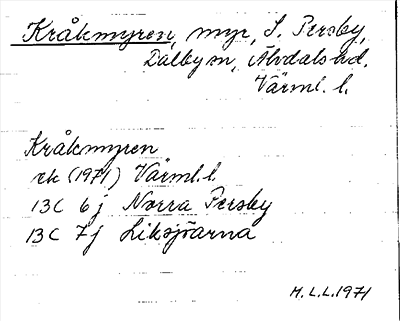 Kråkmyren, myr, S. Persby,
Dalby sn, Älvdals hd.
Värml. l.
Kråkmyren
ek (1971) Värml. l.
13C 6j Norra Persby
13C 7j Liksjöarna
H.L.L. 1971